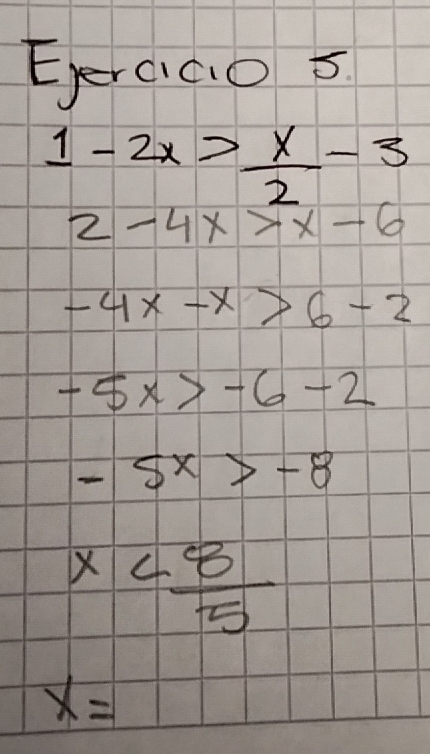 Ejercicio 5.
1 - 2x > x/2 - 3
2 - 4x > x - 6
-4x - x > 6 - 2
-5x > -6 - 2
- 5x > -8
x < 8/5
x =